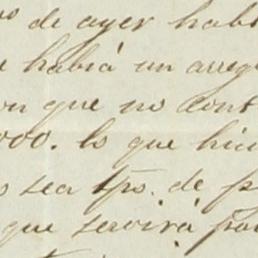 de ayer habl
había un arreg
que no cont
000. lo que hic
sea tpo. de p
que servirá pa